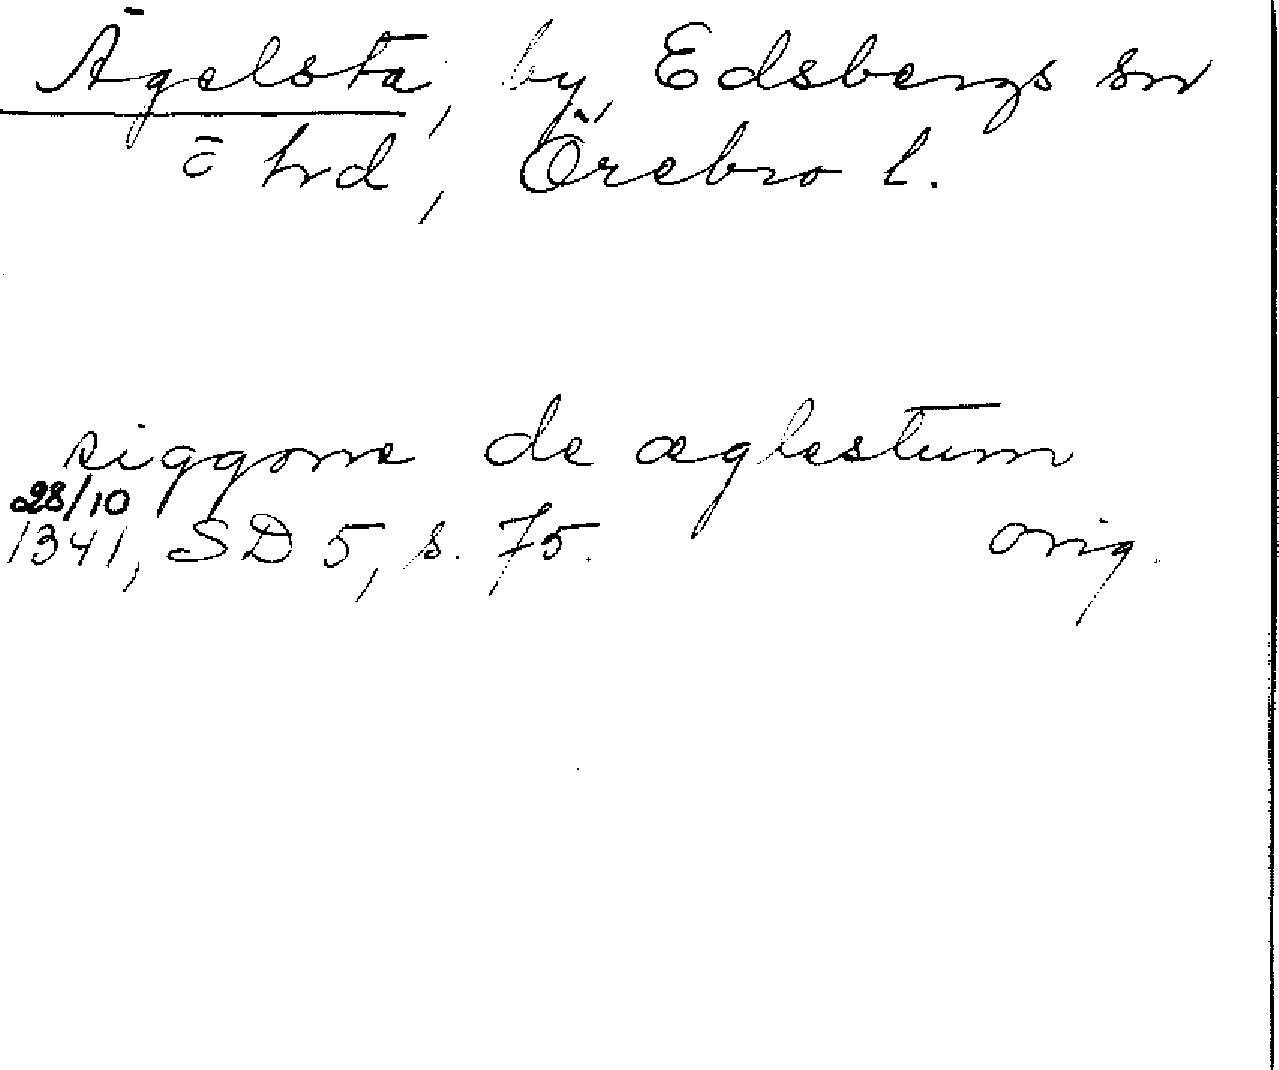 Ägelsta, by, Edsbergs sn
o hrd, Örebro l.
siggone de æglestum
28/10
1341, SD 5, s. 75. orig.